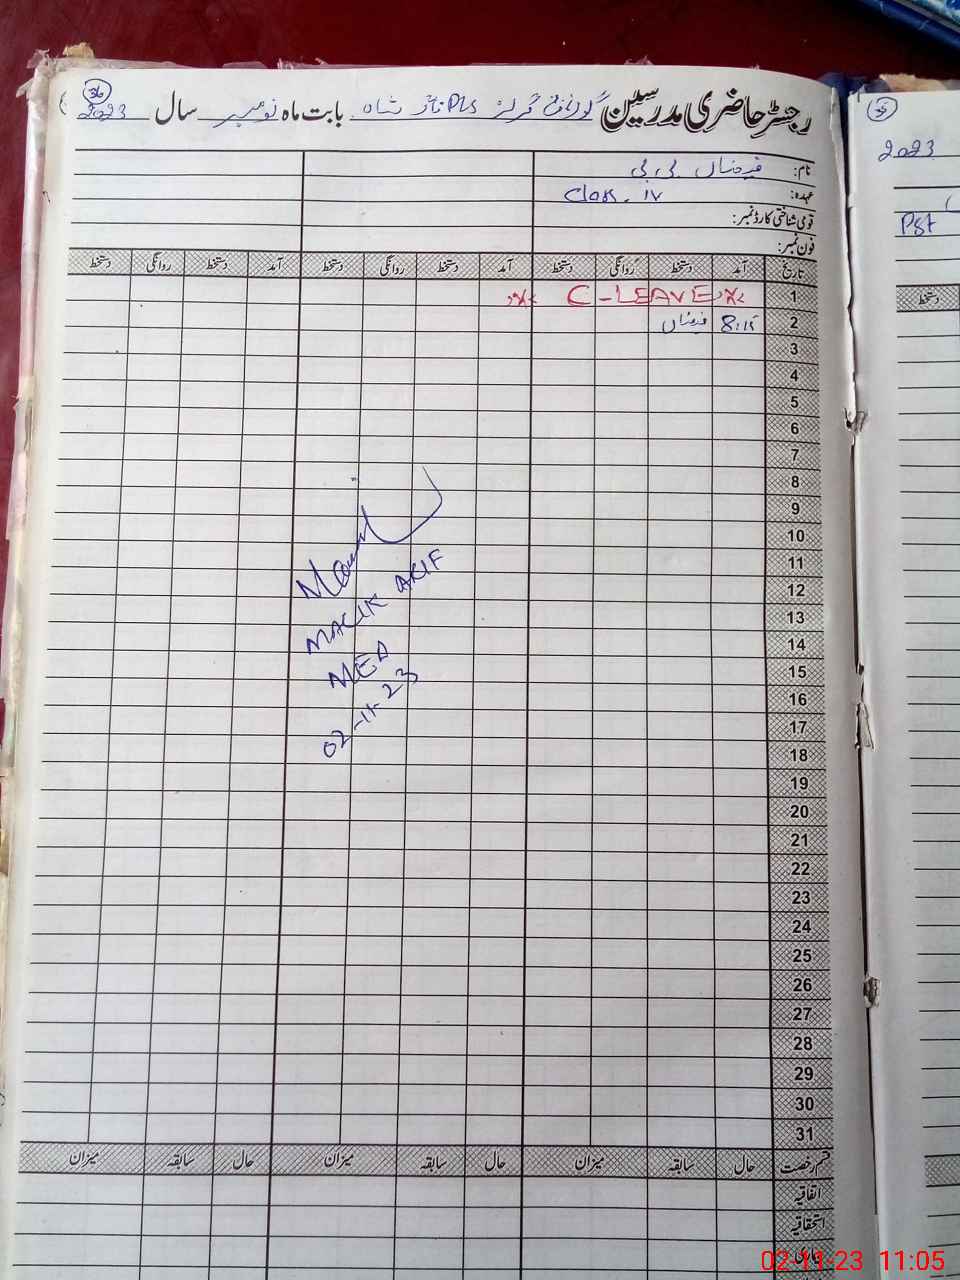 36
رجسٹر حاضری مدرسین گورنمنٹ گرلز P/S شاہ بابت ماہ نومبر سال 2023
نام: فیضاں بی بی
عہدہ: Class. IV
قومی شناختی کارڈ نمبر:
فون نمبر:
تاریخ آمد دستخط روانگی دستخط آمد دستخط روانگی دستخط آمد دستخط روانگی دستخط
1 C-LEAVE
2 8:15 فیضاں
3
4
5
6
7
8
9
10
11
12
13
14
15
16
17
18
19
20
21
22
23
24
25
26
27
28
29
30
31
MALIK ARIF
MEA
02-11-23
قسم رخصت حال سابقہ میزان حال سابقہ میزان حال سابقہ میزان
اتفاقیہ
استحقاقیہ
2023
Pst
دستخط
02-11-23 11:05